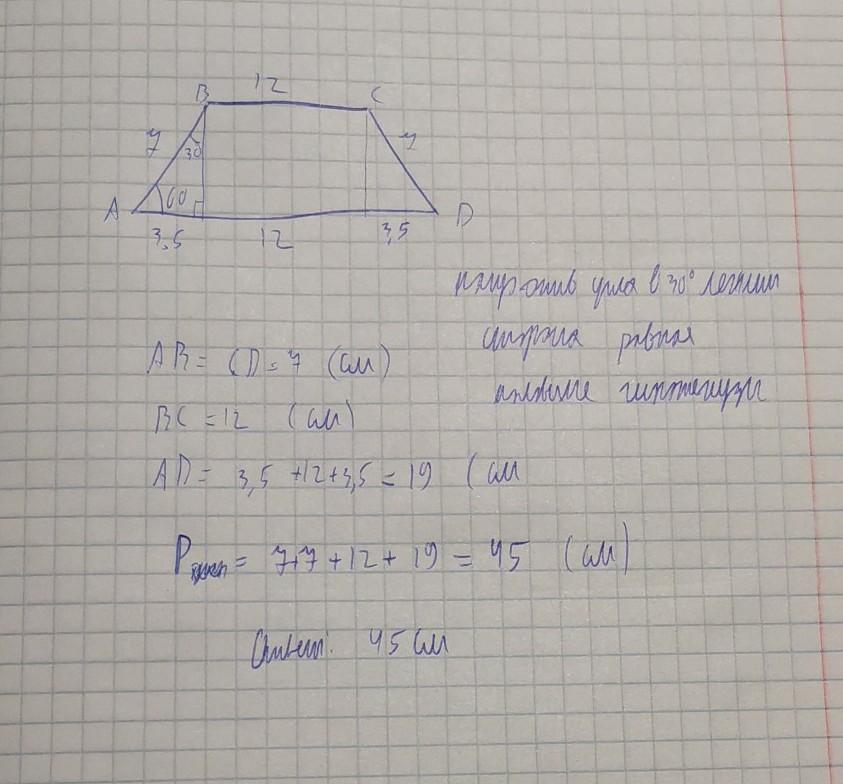 12
B C
7 30 7
A 60 D
3,5 12 3,5
напротив угла в 30° лежит
сторона равная
половине гипотенузы
AB = CD = 7 (см)
BC = 12 (см)
AD = 3,5 + 12 + 3,5 = 19 (см
P = 7+7 + 12 + 19 = 45 (см)
Ответ: 45 см